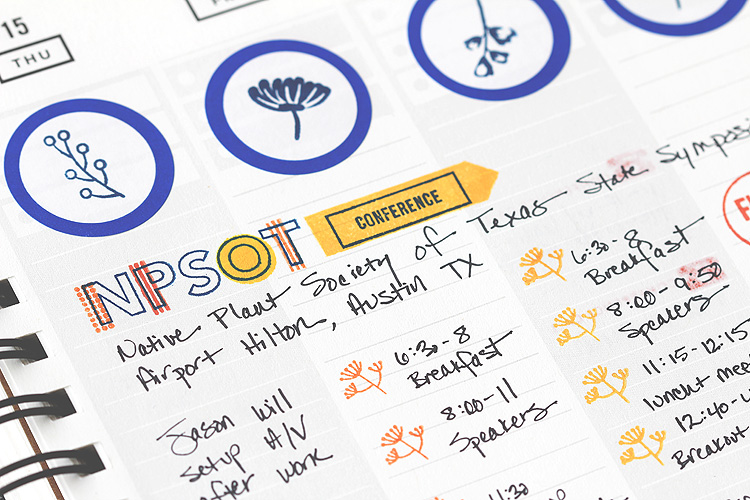 15
THU
CONFERENCE
NPSOT
Native Plant Society of Texas State
Airport Hilton, Austin TX
Jason will
setup A/V
after work
6:30-8
Breakfast
8:00-11
Speakers
11:30
6:30-8
Breakfast
8:00-9:50
Speakers
11:15-12:15
lunch
12:40-
Breakout